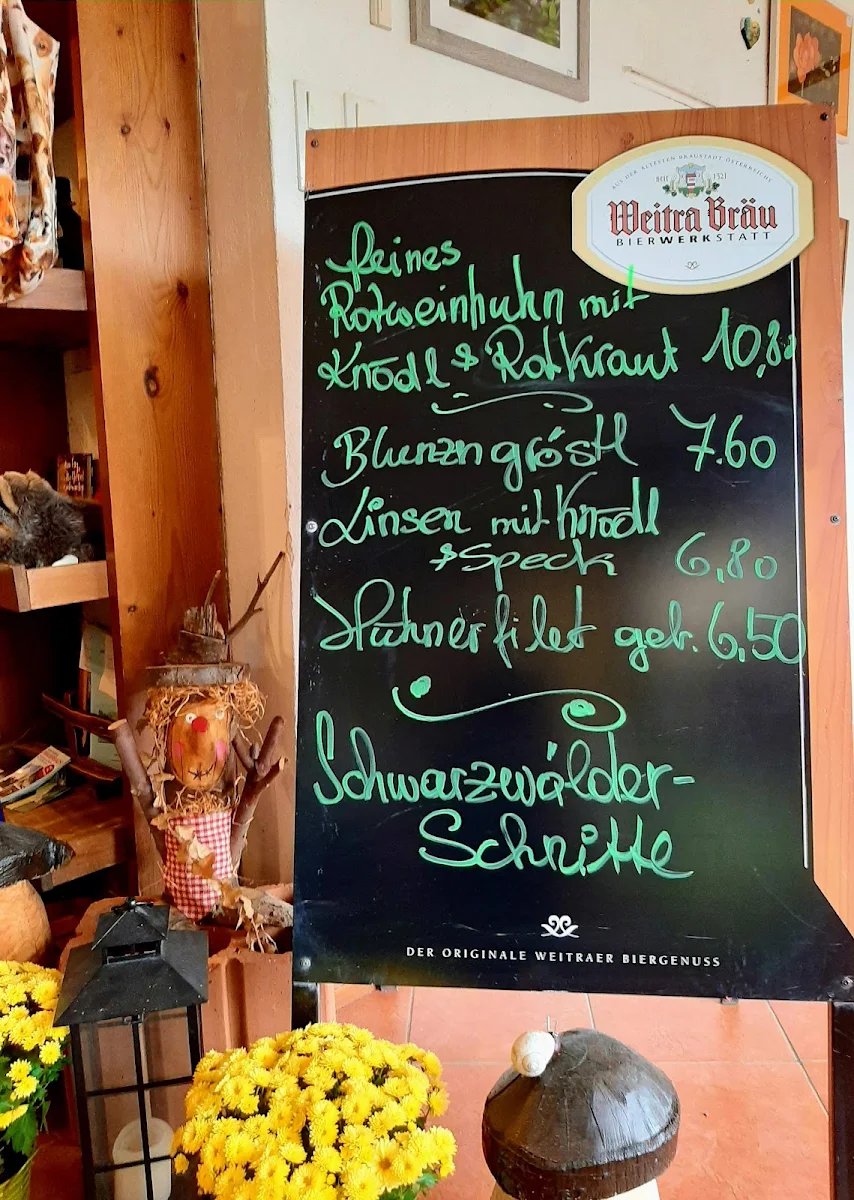 AUS DER ÄLTESTEN BRAUSTADT ÖSTERREICHS
SEIT 1321
Weitra Bräu
BIERWERKSTATT
feines
Rotweinhuhn mit
Knödl & Rotkraut 10,80
Blunzngröstl 7.60
Linsen mit Knödl
& Speck 6,80
Hühnerfilet geb. 6,50
Schwarzwälder-
Schnitte
DER ORIGINALE WEITRAER BIERGENUSS